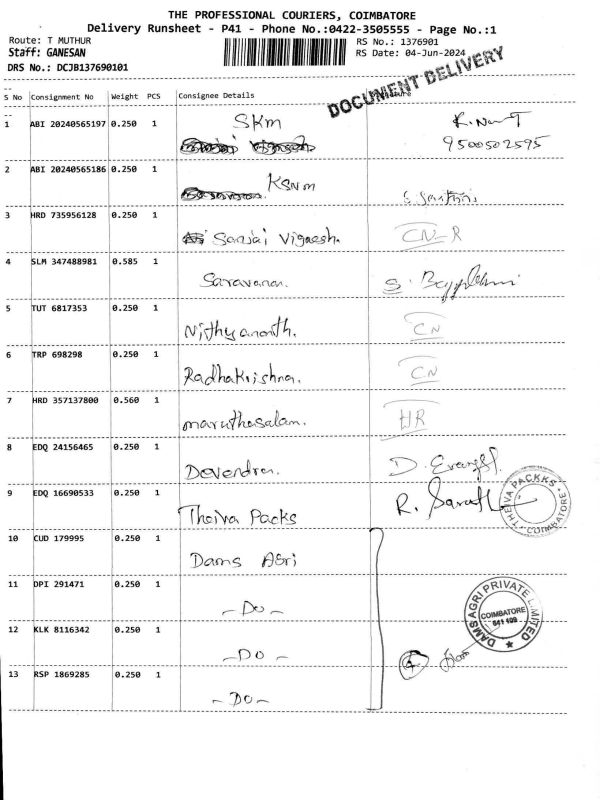 THE PROFESSIONAL COURIERS, COIMBATORE
Delivery Runsheet - P41 - Phone No.:0422-3505555 - Page No.:1
Route: T MUTHUR
RS No.: 1376901
Staff: GANESAN
RS Date: 04-Jun-2024
DRS No.: DCJB137690101
DOCUMENT DELIVERY
S No Consignment No Weight PCS Consignee Details
1 ABI 20240565197 0.250 1 SKM
9500502595
2 ABI 20240565186 0.250 1 KSNM
3 HRD 735956128 0.250 1 Sanjai Vignesh. CN-R
4 SLM 347488981 0.585 1 Saravanan.
5 TUT 6817353 0.250 1 Nithyananth. CN
6 TRP 698298 0.250 1 Radhakrishna. CN
7 HRD 357137800 0.560 1 maruthasalam. HR
8 EDQ 24156465 0.250 1 Devendran. D.
9 EDQ 16690533 0.250 1 Theiva Packs R. Sarath
THEIVA PACKKS * COIMBATORE *
10 CUD 179995 0.250 1 Dams Agri
11 DPI 291471 0.250 1 -Do-
DAMS AGRI PRIVATE LIMITED
COIMBATORE
641 109
12 KLK 8116342 0.250 1 -Do-
4
13 RSP 1869285 0.250 1 -Do-